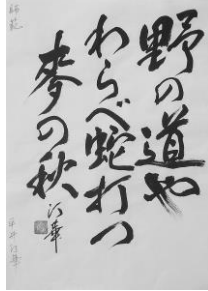 野の道や
わらべ蛇打つ
麦の秋
師範